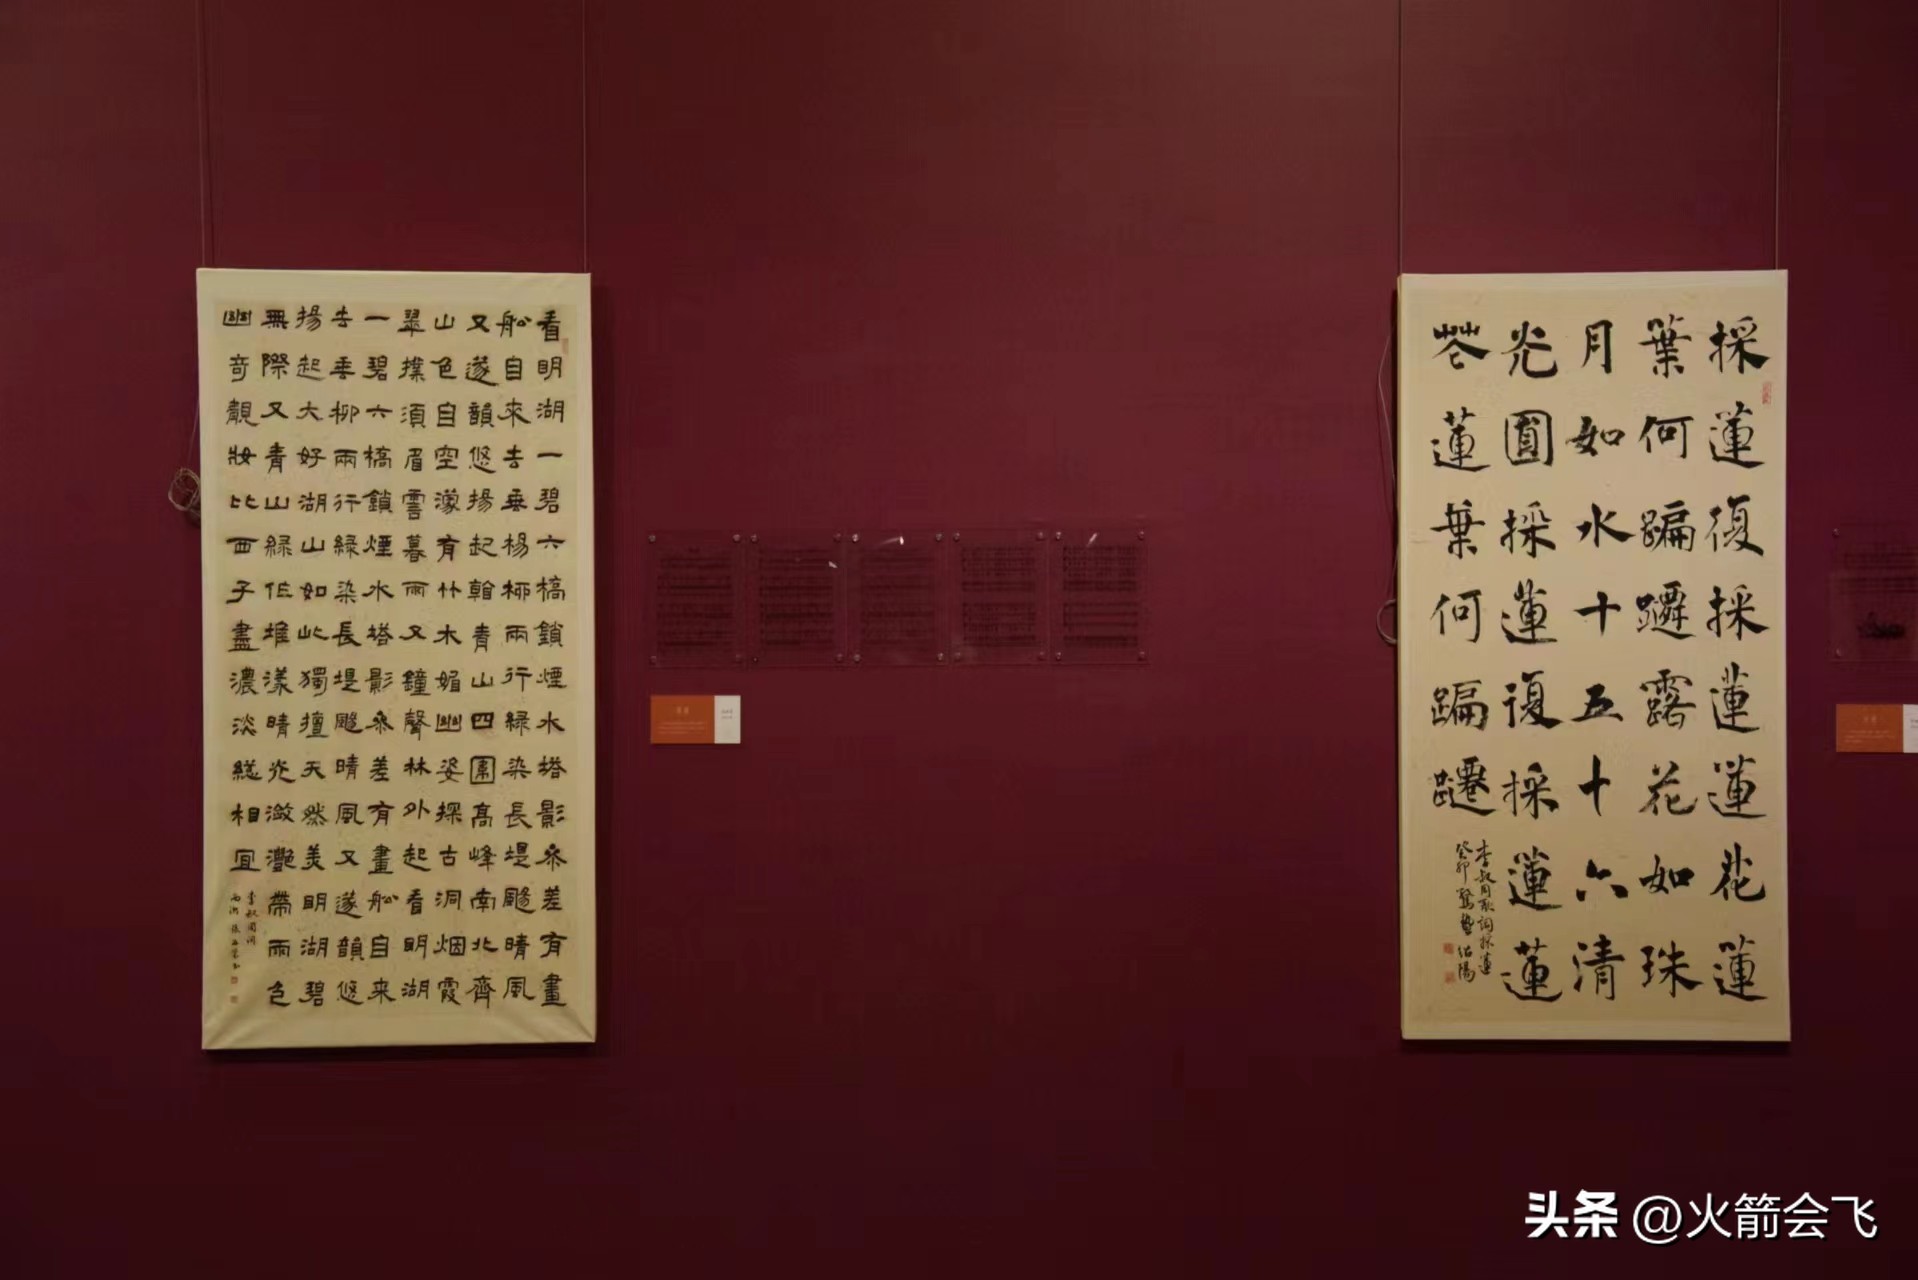 看明湖一碧六橋鎖煙水塔影參差有畫
船自來去垂楊柳兩行綠染長堤颺晴風
又遂韻悠揚起看青山四圍高峰南北齊
山色自空濛有竹木媚幽姿探古洞烟霞
翠撲須眉霅暮雨又鐘聲林外起看明湖
一碧六橋鎖煙水塔影參差有畫船自来
去垂柳兩行綠染長堤颺晴風又遂韻悠
揚起大好湖山如此獨擅天然美明湖碧
無際又青山綠作堆漾晴光瀲灩帶雨色
幽奇靚妝比西子盡濃淡總相宜
李叔同詞
採蓮復採蓮蓮花蓮
葉何蹁躚露花如珠
月如水十五十六清
光圓採蓮復採蓮蓮
花蓮葉何蹁躚
李叔同歌詞採蓮
癸卯驚蟄
头条 @火箭会飞